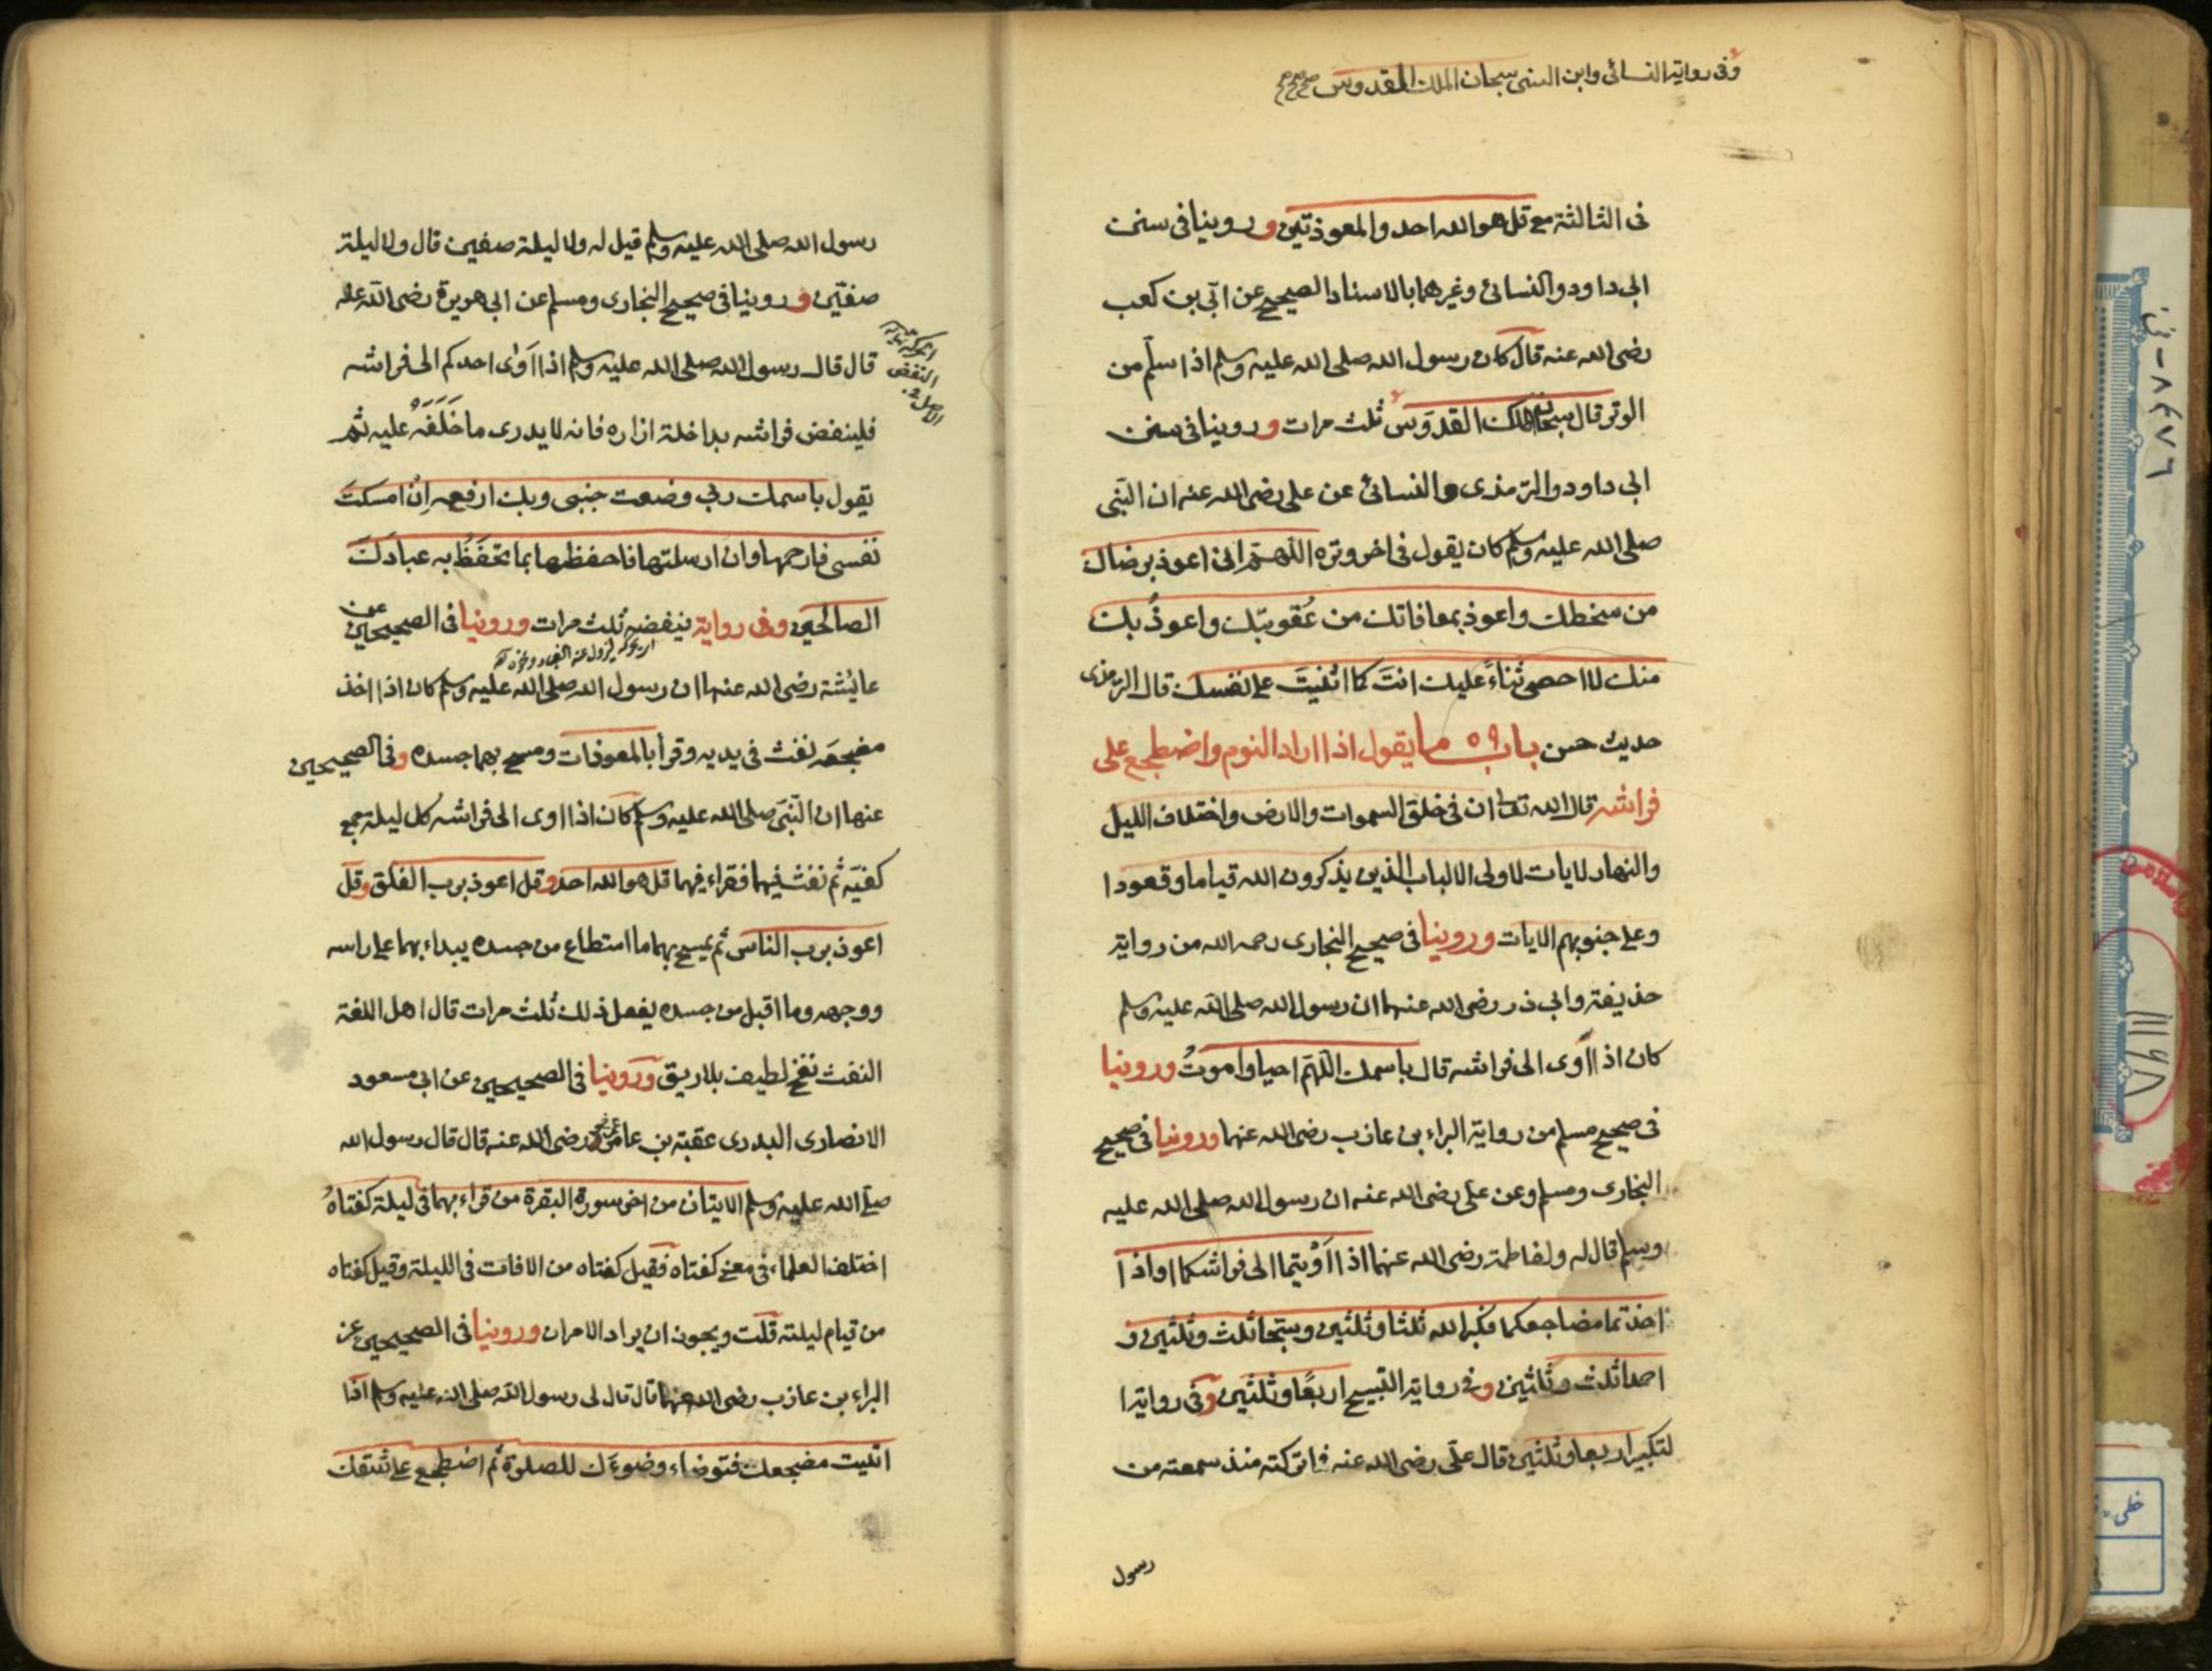 وفى رواية النسائى وابن السنى سبحان الملك القدوس
فى الثالثة مع قل هو الله احد والمعوذتين وروينا فى سنن
ابى داود والنسائى وغيرهما بالاسناد الصحيح عن ابّى بن كعب
رضى الله عنه قال كان رسول الله صلى الله عليه وسلم اذا سلّم من
الوتر قال سبحان الملك القدوس ثلث مرات وروينا فى سنن
ابى داود والترمذى والنسائى عن على رضى الله عنه ان النبى
صلى الله عليه وسلم كان يقول فى اخر وتره اللهم انى اعوذ برضاك
من سخطك واعوذ بمعافاتك من عُقوبتك واعوذُ بك
منك لا احصى ثناءً عليك انتَ كما اثنيتَ على نفسك قال الترمذى
حديث حسن باب ٥٩ ما يقول اذا اراد النوم واضطجع على
فراشه قال الله تعالى ان فى خلق السموات والارض واختلاف الليل
والنهار لايات لاولى الالباب الذين يذكرون الله قياما وقعودا
وعلى جنوبهم الايات وروينا فى صحيح البخارى رحمه الله من رواية
حذيفة وابى ذر رضى الله عنهما ان رسول الله صلى الله عليه وسلم
كان اذا اوى الى فراشه قال باسمك اللهم احيا واموتُ وروينا
فى صحيح مسلم من رواية البراء بن عازب رضى الله عنهما وروينا فى صحيح
البخارى ومسلم وعن على رضى الله عنه ان رسول الله صلى الله عليه
وسلم قال له ولفاطمة رضى الله عنهما اذا اَوَيتما الى فراشكما او اذا
اخذتما مضاجعكما فكبرا لله ثلثا وثلثين وسبّحا ثلث وثلثين و
احمدا ثلث وثلثين وفى رواية التسبيح اربعًا وثلثين وفى رواية ا
لتكبير اربعا وثلثين قال على رضى الله عنه فما تركته منذ سمعته من
رسول
رسول الله صلى الله عليه وسلم قيل له ولا ليلة صفين قال ولا ليلة
صفّين وروينا فى صحيح البخارى ومسلم عن ابى هريرة رضى الله عنه
قال قال رسول الله صلى الله عليه وسلم اذا اَوٰى احدكم الى فراشه
النفض
فلينفض فراشه بداخلة ازاره فانه لا يدرى ما خَلَفَهُ عليه ثم
يقول باسمك ربى وضعت جنبى وبك ارفعه اِنْ امسكتَ
نفسى فارحمها وان ارسلتها فاحفظها بما تحفَظُ به عبادَكَ
الصالحين وفى رواية ينفضه ثلث مرات وروينا فى الصحيحين عن
عائشة رضى الله عنها ان رسول الله صلى الله عليه وسلم كان اذا اخذ
مضجعَه نفث فى يديه وقرأ بالمعوذات ومسح بهما جسده وفى الصحيحين
عنها ان النّبىَ صلى الله عليه وسلم كان اذا اوى الى فراشه كل ليلة جمع
كفيّه ثم نفث فيهما فقراء فيهما قل هو الله احد وقل اعوذ برب الفلق وقل
اعوذ برب الناس ثم يمسح بهما ما استطاع من جسده يبداء بهما على راسه
ووجهه وما اقبل من جسده يفعل ذلك ثلث مرات قال اهل اللغة
النفث نفخ لطيف بلا ريق وروينا فى الصحيحين عن ابى مسعود
الانصارى البدرى عقبة بن عامر رضى الله عنه قال قال رسول الله
صلى الله عليه وسلم الايتان من اخر سورة البقرة من قراء بهما فى ليلة كفتاهُ
اختلف العلماء فى معنى كفتاه فقيل كفتاه من الافات فى الليلة وقيل كفتاه
من قيام ليلته قلت ويجوز ان يراد الامران وروينا فى الصحيحين عن
البراء بن عازب رضى الله عنهما قال قال لى رسول الله صلى الله عليه وسلم اذا
اتيت مضجعك فتوضاء وضوءَك للصلوة ثم اضطجع على شقك